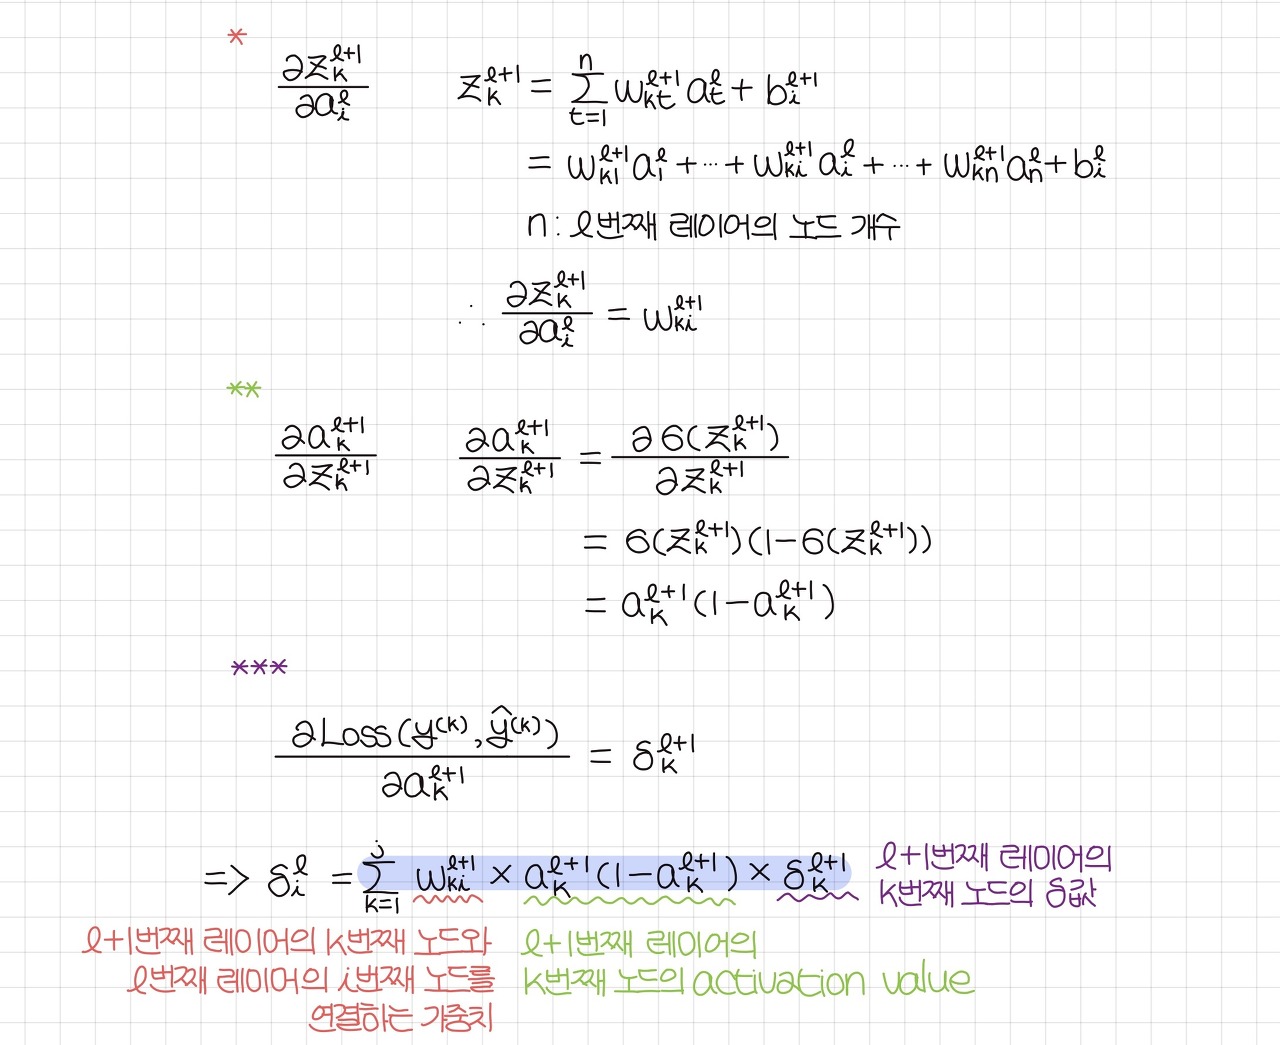 *
∂z_k^{ℓ+1} / ∂a_i^ℓ    z_k^{ℓ+1} = Σ_{t=1}^{n} w_{kt}^{ℓ+1} a_t^ℓ + b_i^{ℓ+1}
= w_{k1}^{ℓ+1} a_1^ℓ + ··· + w_{ki}^{ℓ+1} a_i^ℓ + ··· + w_{kn}^{ℓ+1} a_n^ℓ + b_i^ℓ
n : ℓ번째 레이어의 노드 개수
∴ ∂z_k^{ℓ+1} / ∂a_i^ℓ = w_{ki}^{ℓ+1}
**
∂a_k^{ℓ+1} / ∂z_k^{ℓ+1}    ∂a_k^{ℓ+1} / ∂z_k^{ℓ+1} = ∂σ(z_k^{ℓ+1}) / ∂z_k^{ℓ+1}
= σ(z_k^{ℓ+1})(1-σ(z_k^{ℓ+1}))
= a_k^{ℓ+1}(1-a_k^{ℓ+1})
***
∂Loss(y^{(k)}, ŷ^{(k)}) / ∂a_k^{ℓ+1} = δ_k^{ℓ+1}
=> δ_i^ℓ = Σ_{k=1}^{j} w_{ki}^{ℓ+1} × a_k^{ℓ+1}(1-a_k^{ℓ+1}) × δ_k^{ℓ+1}
ℓ+1번째 레이어의
k번째 노드의 δ값
ℓ+1번째 레이어의 k번째 노드와
ℓ번째 레이어의 i번째 노드를
연결하는 가중치
ℓ+1번째 레이어의
k번째 노드의 activation value